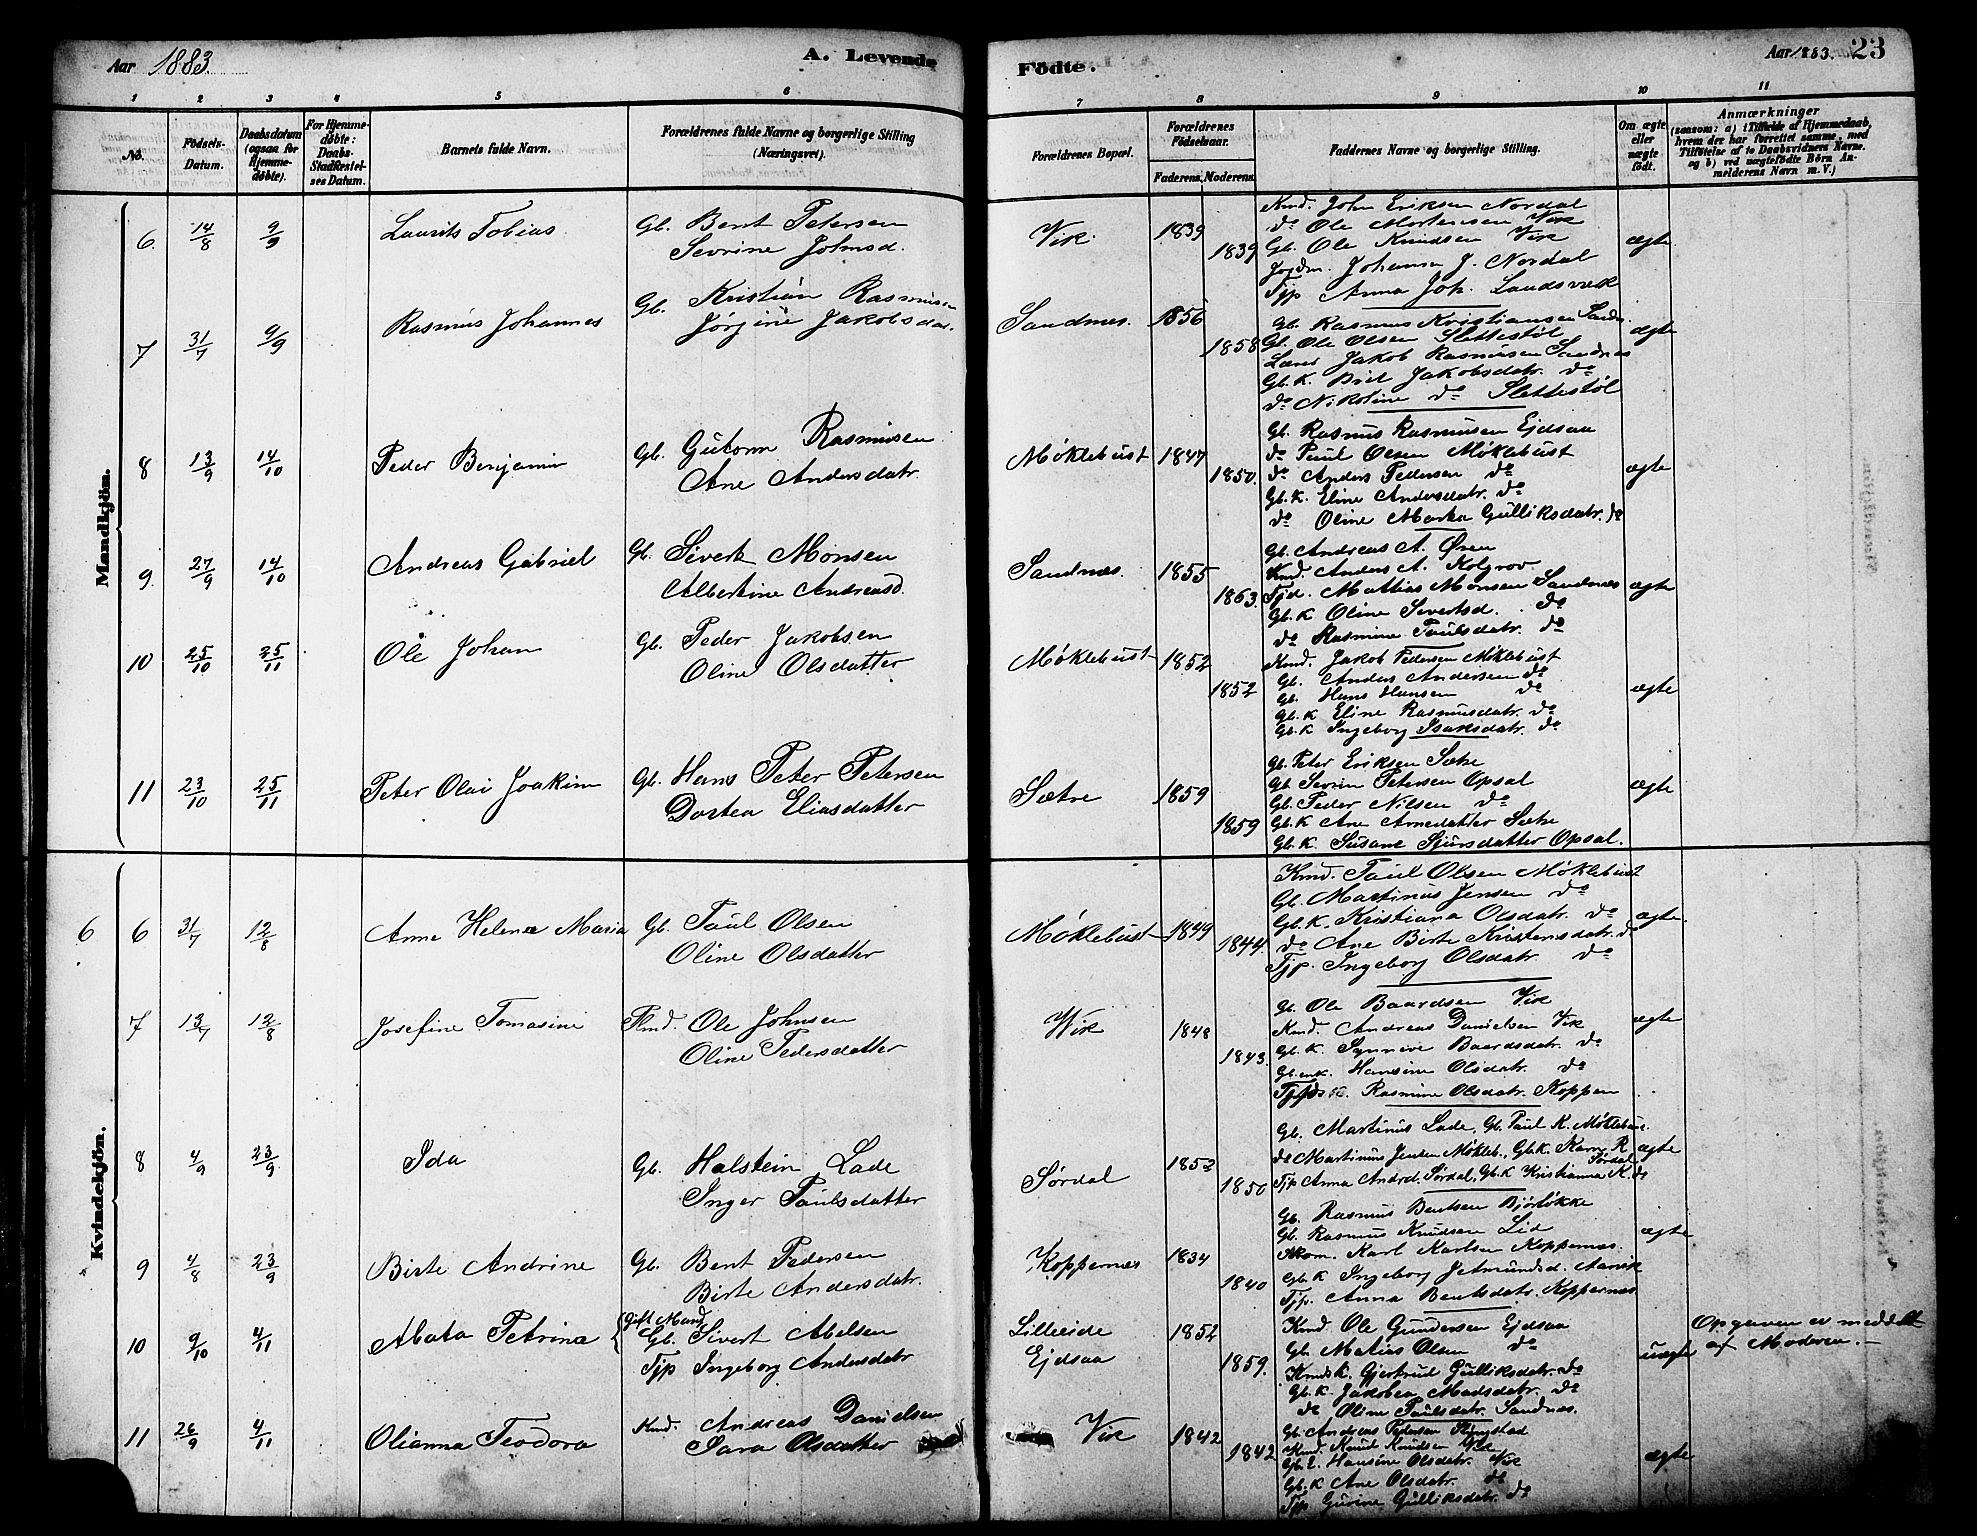 Aar 1883.
A. Levende
Födte.
Aar 1883. 23
1 2 3 4 5 6 7 8 9 10 11
No.
Födsels-Datum.
Daabsdatum (ogsaa for Hjemme-døbte).
For Hjemme-døbte: Daabs-Stadfæstel-ses Datum.
Barnets fulde Navn.
Forældrenes fulde Navne og borgerlige Stilling (Næringsvei).
Forældrenes Bopæl.
Forældrenes Födselsaar.
Faderens. Moderens.
Faddernes Navne og borgerlige Stilling.
Om ægte eller uægte født.
Anmærkninger
(saasom: a) i Tilfælde af Hjemmedaab, hvem der har forrettet samme, med Tilføielse af to Daabsvidners Navne. og b) ved uægtefödte Börn An-melderens Navn m. V.)
Mandkjön.
6 14/8 9/9 Laurits Tobias. Gb. Bent Petersen Vik. 1839
Sevrine Johnsd. 1839 ægte
Kmd. John Eriksen Nordal
do Ole Mortensen Vik
Gb. Ole Knudsen Vik
Johanna J. Nordal
Tjp Anna Joh. Landsvek
7 31/7 9/9 Rasmus Johannes Gb. Kristian Rasmusen Sandnes. 1856
Jørgine Jakobsdat. 1858 ægte
Gb. Rasmus Kristiansen Sandn.
Gb. Ole Olsen Slettestøl
Lærer Jakob Rasmusen Sandnes
Gb.K. Brit Jakobsdatr. do
do Nikoline do Slettestøl
8 13/9 14/10 Peder Benjamin Gb. Gutorm Rasmusen Møklebust 1847
Ane Andersdatr. 1850. ægte
Gb. Rasmus Rasmusen Ejdsaa
do Paul Olsen Møklebust
do Anders Pedersen do
Gb.K. Eline Andersdatr. do
do Oline Marta Gulliksdatr. do
9. 27/9 14/10 Andreas Gabriel Gb. Sivert Monsen Sandnæs. 1855
Albertine Andreasd. 1863. ægte
Gb. Andreas A. Øren
Kmd. Anders A. Kolgrov
Tjd. Mathias Monsen Sandnæs
Gb.K Oline Sivertsd. do
do Rasmine Paulsdatr. do
10 25/10 25/11 Ole Johan Gb. Peder Jakobsen Møklebust 1852
Oline Olsdatter 1852 ægte
Kmd. Jakob Pedersen Møklebust
Gb. Anders Andersen do
Gb. Hans Hansen do
Gb.K Eline Rasmusdatr. do
Gb.K Ingeborg Isaksdatr. do
11 23/10 25/11 Peter Olai Joakim Gb. Hans Peter Petersen Sætre 1859
Dortea Eliasdatter 1859 ægte
Gb. Peter Eriksen Sætre
Gb Sevrin Petersen Opsal
Gb. Peder Nilsen do
Gb.K Ane Arnedatter Sætre
Gb.K. Susane Sjursdatter Opsal.
Kvindekjön.
6 6 31/7 12/8 Anne Helene Maria Gb. Paul Olsen Møklebust 1849
Oline Olsdatter 1844. ægte.
Kmd. Paul Olsen Møklebust
Gb. Martinus Jensen do
Gb.K. Kristiana Olsdatr. do
do Ane Birte Kristensdatr. do
Tjp. Ingeborg Olsdatr. do
7 13/7 12/8 Josefine Tomasine Kmd. Ole Johnsen Vik 1848
Oline Pedersdatter 1843. ægte
Gb. Ole Baardsen Vik
Kmd. Andreas Danielsen Vik
Gb.K. Synneve Baardsdatr. do
Gb.enk. Hansine Olsdatr. do
Rasmine Olsdatr. Koppen
8 4/9 23/9 Ida Gb. Halstein Lade Sørdal 1852
Inger Paulsdatter 1850 ægte
Gb. Martinus Lade, Gb. Paul K. Møklebust
do Martinus Jensen Møkleb., Gb.K. Karn. R. Sørdal
Tjp Anna Andrd. Sørdal, Gb.K Kristianna K. do
9 4/8 23/9 Birte Andrine Gb. Bent Pedersen Koppernæs 1834
Birte Andersdatr. 1840 ægte
Gb. Rasmus Bentsen Bjørløkke
Gb. Rasmus Knudsen Lid
Karl Karlsen Koppernæs.
Gb.K Ingeborg Jetmundsd. Aarvik
Tjp. Anna Bentsdatr. Koppernæs
10 9/10 4/11 Abata Petrina {gift Mand Gb. Sivert Abelsen Lilleeide 1852
Tjp Ingeborg Andersdatr Ejdsaa 1859. uægte
Kmd Ole Gundersen Ejdsaa
Gb. Matias Olsen do
KmdK. Gjertrud Gulliksdatr. do
Gb.K. Jakobea Madsdatr. do
do Oline Paulsdatr. Sandnæs.
Opgaven er meddelt af Moderen.
11 26/9 4/11 Olianna Teodora Kmd. Andreas Danielsen Vik 1842
Sara Olsdatter 1842 ægte
Gb. Andreas Pedersen Ringstad
Kmd. Knud Knudsen Vik
Hansine Olsdatr. Vik
Gb.K Ane Olsdatr. do
Tjp Gurine Gulliksdatr. do